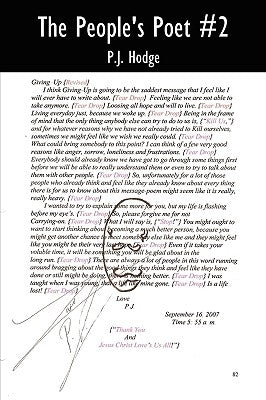 The People's Poet #2
P.J. Hodge
Giving Up {Revised}
I think Giving-Up is going to be the saddest message that I feel like I
will ever have to write about. {Tear Drop} Feeling like we are not able to
take anymore. {Tear Drop} Loosing all hope and will to live. {Tear Drop}
Living everyday just, because we woke up. {Tear Drop} Being in the frame
of mind that the only thing anybody else can try to do to us is, {"Kill Us,"}
and for whatever reasons why we have not already tried to Kill ourselves,
sometimes we might feel like we wish we really could. {Tear Drop}
What could bring somebody to this point? I can think of a few very good
reasons like anger, sorrow, loneliness and frustrations. {Tear Drop}
Everybody should already know we have got to go through some things first
before we will be able to really understand them or even to try to talk about
them with other people. {Tear Drop} So, unfortunately for a lot of those
people who already think and feel like they already know about every thing
there is for us to know about this message poem might seem like it is really,
really heavy. {Tear Drop}
I wanted to try to explain some more for you, but my life is flashing
before my eye's. {Tear Drop} So, please forgive me for not
Carrying-on. {Tear Drop} What I will say is, {"Stop!"} You might ought to
want to start thinking about becoming a much better person, because you
might get another chance to meet somebody else like me and they might feel
like you might be their very last hope. {Tear Drop} Even if it takes your
voluable time, it will be something you will be glad about in the
long run. {Tear Drop} There are always a lot of people in this word running
around bragging about the good things they think and feel like they have
done or still might be doing, {Tear Drop} {Tear Drop} I was
taught when I was young, that a life like mine gone. {Tear Drop} Is a life
lost! {Tear Drop}
Love
P J
September 16, 2007
Time 5: 55 a m
{"Thank You
And
Jesus Christ Love's Us All!"}
82